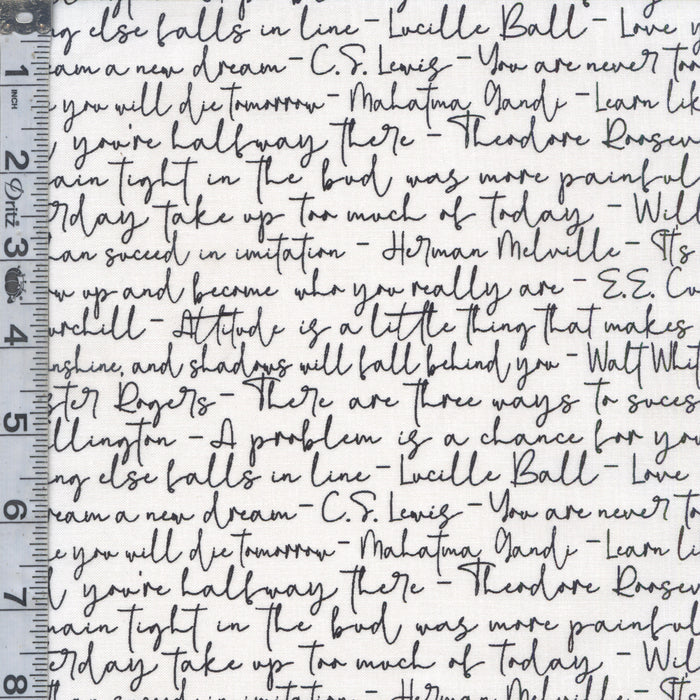 ng else falls in line - Lucille Ball - Love y
eam a new dream - C.S. Lewis - You are never too
e you will die tomorrow - Mahatma Gandi - Learn lik
you're halfway there - Theodore Roosev
ain tight in the bud was more painful
erday take up too much of today - Will
an suceed in imitation - Herman Melville - Its
w up and become who you really are - E.E. Cu
urchill - Attitude is a little thing that makes
nshine, and shadows will fall behind you - Walt Whit
ster Rogers - There are three ways to suces
llington - A problem is a chance for you
ng else falls in line - Lucille Ball - Love
ream a new dream - C.S. Lewis - You are never to
e you will die tomorrow - Mahatma Gandi - Learn li
you're halfway there - Theodore Roosev
main tight in the bud was more painful
erday take up too much of today - Wil
an suceed in imitation - Herman Melville - Its
1 INCH
2
Dritz
3
4
5
6
7
8